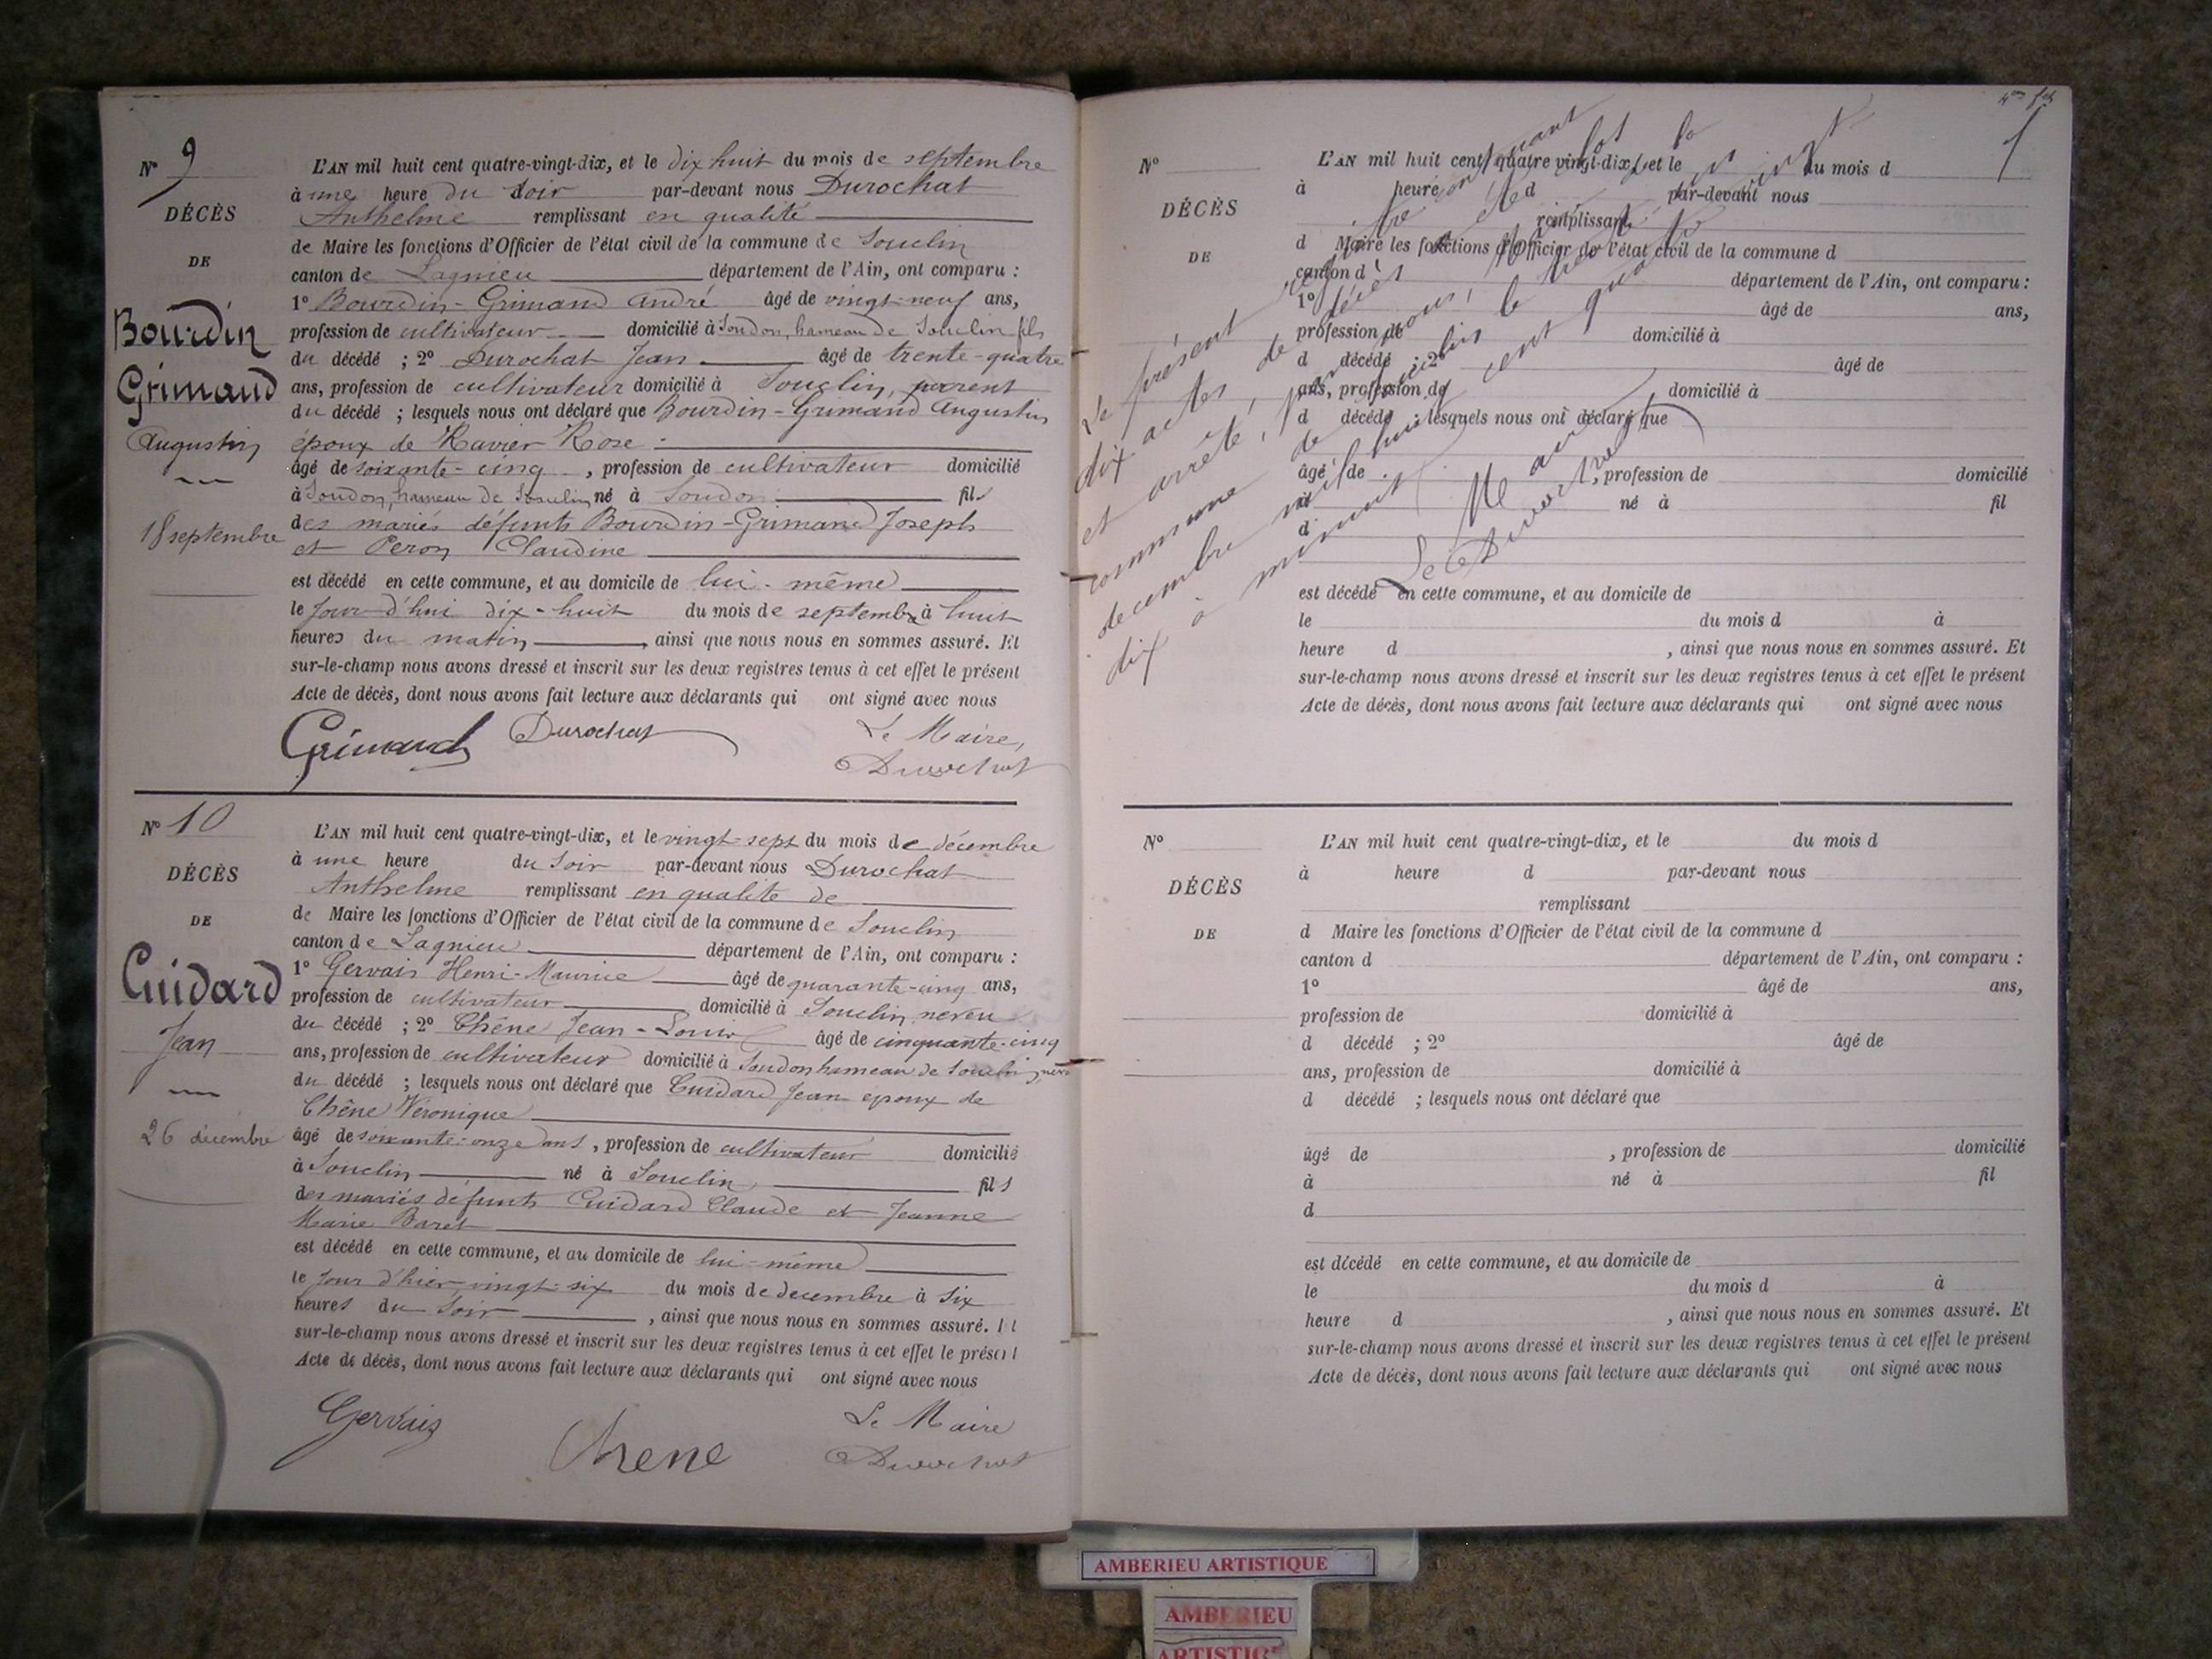 N° 9
DÉCÈS
DE
Bourdin
Grimaud
Augustin
18 septembre
L'AN mil huit cent quatre-vingt-dix, et le dix huit du mois de septembre
à une heure du soir par-devant nous Durochat
Anthelme remplissant en qualité
de Maire les fonctions d'Officier de l'état civil de la commune de Souclin
canton de Lagnieu département de l'Ain, ont comparu :
1° Bourdin-Grimaud André âgé de vingt-neuf ans,
profession de cultivateur domicilié à Soudon, hameau de Souclin fils
du décédé ; 2° Durochat Jean âgé de trente-quatre
ans, profession de cultivateur domicilié à Souclin, parent
du décédé ; lesquels nous ont déclaré que Bourdin-Grimaud Augustin
époux de Ravier Rose
âgé de soixante-cinq , profession de cultivateur domicilié
à Soudon, hameau de Souclin né à Soudon fils
des mariés défunts Bourdin-Grimaud Joseph
et Peron Claudine
est décédé en cette commune, et au domicile de lui-même
le jour d'hui dix-huit du mois de septembre à huit
heures du matin , ainsi que nous nous en sommes assuré. Et
sur-le-champ nous avons dressé et inscrit sur les deux registres tenus à cet effet le présent
Acte de décès, dont nous avons fait lecture aux déclarants qui ont signé avec nous
Grimaud Durochat Le Maire,
Durochat
N° 10
DÉCÈS
DE
Cuidard
Jean
26 décembre
L'AN mil huit cent quatre-vingt-dix, et le vingt-sept du mois de décembre
à une heure du soir par-devant nous Durochat
Anthelme remplissant en qualité de
de Maire les fonctions d'Officier de l'état civil de la commune de Souclin
canton de Lagnieu département de l'Ain, ont comparu :
1° Gervais Henri-Maurice âgé de quarante-cinq ans,
profession de cultivateur domicilié à Souclin, neveu
du décédé ; 2° Chêne Jean-Louis âgé de cinquante-cinq
ans, profession de cultivateur domicilié à Soudon hameau de Souclin,
du décédé ; lesquels nous ont déclaré que Cuidard Jean époux de
Chêne Véronique
âgé de soixante-onze ans , profession de cultivateur domicilié
à Souclin né à Souclin fils
des mariés défunts Cuidard Claude et Jeanne
Marie Baret
est décédé en cette commune, et au domicile de lui-même
le jour d'hier vingt-six du mois de décembre à six
heures du soir , ainsi que nous nous en sommes assuré.
sur-le-champ nous avons dressé et inscrit sur les deux registres tenus à cet effet le présent
Acte de décès, dont nous avons fait lecture aux déclarants qui ont signé avec nous
Gervais Chene Le Maire
Durochat
N°
DÉCÈS
DE
L'AN mil huit cent quatre vingt-dix, et le du mois d
à heure d par-devant nous
remplissant
d Maire les fonctions d'Officier de l'état civil de la commune d
canton d département de l'Ain, ont comparu :
1° âgé de ans,
profession de domicilié à
d décédé ; 2° âgé de
ans, profession de domicilié à
d décédé ; lesquels nous ont déclaré que
âgé de , profession de domicilié
à né à fil
d
est décédé en cette commune, et au domicile de
le du mois d à
heure d , ainsi que nous nous en sommes assuré. Et
sur-le-champ nous avons dressé et inscrit sur les deux registres tenus à cet effet le présent
Acte de décès, dont nous avons fait lecture aux déclarants qui ont signé avec nous
Le présent registre contenant
dix actes de décès a été clos
et arrêté, par nous, Maire de la
commune de Souclin le trente un
décembre mil huit cent quatre vingt
dix à minuit
Le Maire
Durochat
N°
DÉCÈS
DE
L'AN mil huit cent quatre-vingt-dix, et le du mois d
à heure d par-devant nous
remplissant
d Maire les fonctions d'Officier de l'état civil de la commune d
canton d département de l'Ain, ont comparu :
1° âgé de ans,
profession de domicilié à
d décédé ; 2° âgé de
ans, profession de domicilié à
d décédé ; lesquels nous ont déclaré que
âgé de , profession de domicilié
à né à fil
d
est décédé en cette commune, et au domicile de
le du mois d à
heure d , ainsi que nous nous en sommes assuré. Et
sur-le-champ nous avons dressé et inscrit sur les deux registres tenus à cet effet le présent
Acte de décès, dont nous avons fait lecture aux déclarants qui ont signé avec nous
AMBERIEU ARTISTIQUE
AMBERIEU
ARTISTIQUE